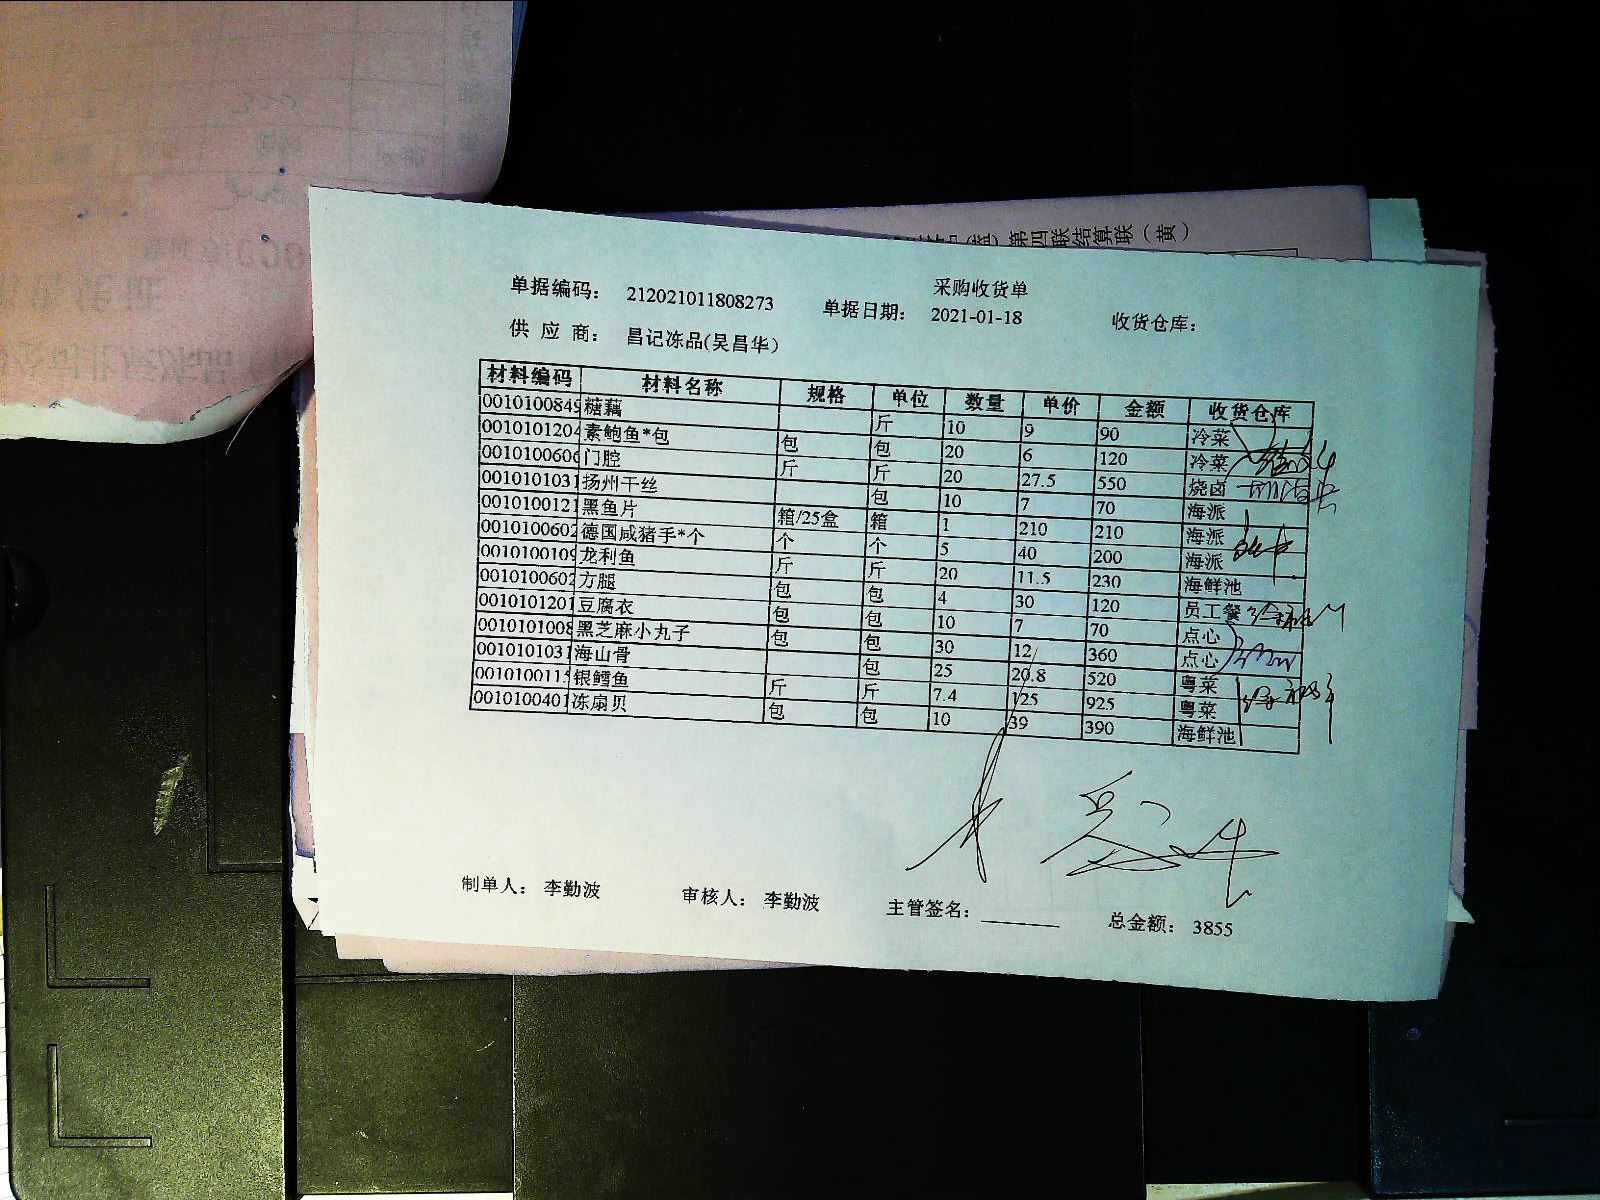 第四联结算联（黄）
采购收货单
单据编码： 212021011808273 单据日期： 2021-01-18 收货仓库：
供 应 商： 昌记冻品(吴昌华)
材料编码 材料名称 规格 单位 数量 单价 金额 收货仓库
0010100849 糖藕 斤 10 9 90 冷菜
0010101204 素鲍鱼*包 包 包 20 6 120 冷菜
0010100606 门腔 斤 斤 20 27.5 550 烧卤
0010101031 扬州干丝 包 10 7 70 海派
0010100121 黑鱼片 箱/25盒 箱 1 210 210 海派
0010100602 德国咸猪手*个 个 个 5 40 200 海派
0010100109 龙利鱼 斤 斤 20 11.5 230 海鲜池
0010100602 方腿 包 包 4 30 120 员工餐
0010101201 豆腐衣 包 包 10 7 70 点心
0010101008 黑芝麻小丸子 包 包 30 12 360 点心
0010101031 海山骨 包 25 20.8 520 粤菜
0010100115 银鳕鱼 斤 斤 7.4 125 925 粤菜
0010100401 冻扇贝 包 包 10 39 390 海鲜池
制单人： 李勤波 审核人： 李勤波 主管签名： 总金额： 3855